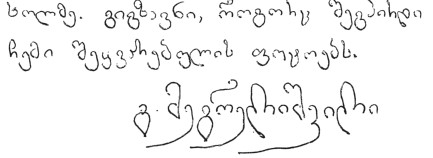 ხოლმე. გიგზავნი, როგორც შეგპირდი
ჩემი შეყვარებულის ფოტოებს.
გ. მეგრელიშვილი